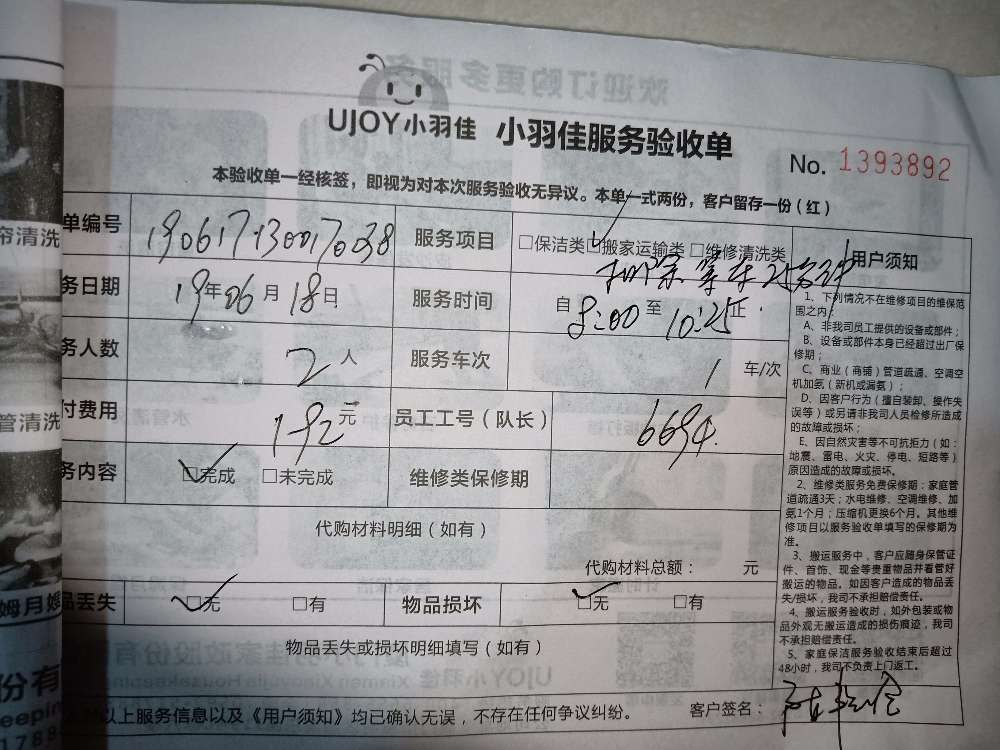 UJOY小羽佳 小羽佳服务验收单
No. 1393892
本验收单一经核签，即视为对本次服务验收无异议。本单一式两份，客户留存一份（红）
单编号 190617130017038 服务项目 □保洁类 ☑搬家运输类 □维修清洗类
务日期 19年06月18日 服务时间 自8:00至10:25止
务人数 2人 服务车次 1 车/次
付费用 192元 员工工号（队长） 6694
务内容 ☑完成 □未完成 维修类保修期
代购材料明细（如有）
代购材料总额： 元
品丢失 ☑无 □有 物品损坏 ☑无 □有
物品丢失或损坏明细填写（如有）
以上服务信息以及《用户须知》均已确认无误，不存在任何争议纠纷。 客户签名：
用户须知
1、下列情况不在维修项目的维保范
围之内：
A、非我司员工提供的设备或部件；
B、设备或部件本身已经超过出厂保
修期；
C、商业（商铺）管道疏通、空调空
机加氨（新机或漏氨）；
D、因客户行为（擅自装卸、操作失
误等）或另请非我司人员检修所造成
的故障或损坏；
E、因自然灾害等不可抗拒力（如：
地震、雷电、火灾、停电、短路等）
原因造成的故障或损坏。
2、维修类服务免费保修期：家庭管
道疏通3天；水电维修、空调维修、加
氨1个月；压缩机更换6个月。其他维
修项目以服务验收单填写的保修期为
准。
3、搬运服务中，客户应随身保管证
件、首饰、现金等贵重物品并看管好
搬运的物品。如因客户造成的物品丢
失/损坏，我司不承担赔偿责任。
4、搬运服务验收时，如外包装或物
品外观无搬运造成的损伤痕迹，我司
不承担赔偿责任。
5、家庭保洁服务验收结束后超过
48小时，我司不负责上门返工。
帘清洗
管清洗
姆月嫂
份有
eepin
1788